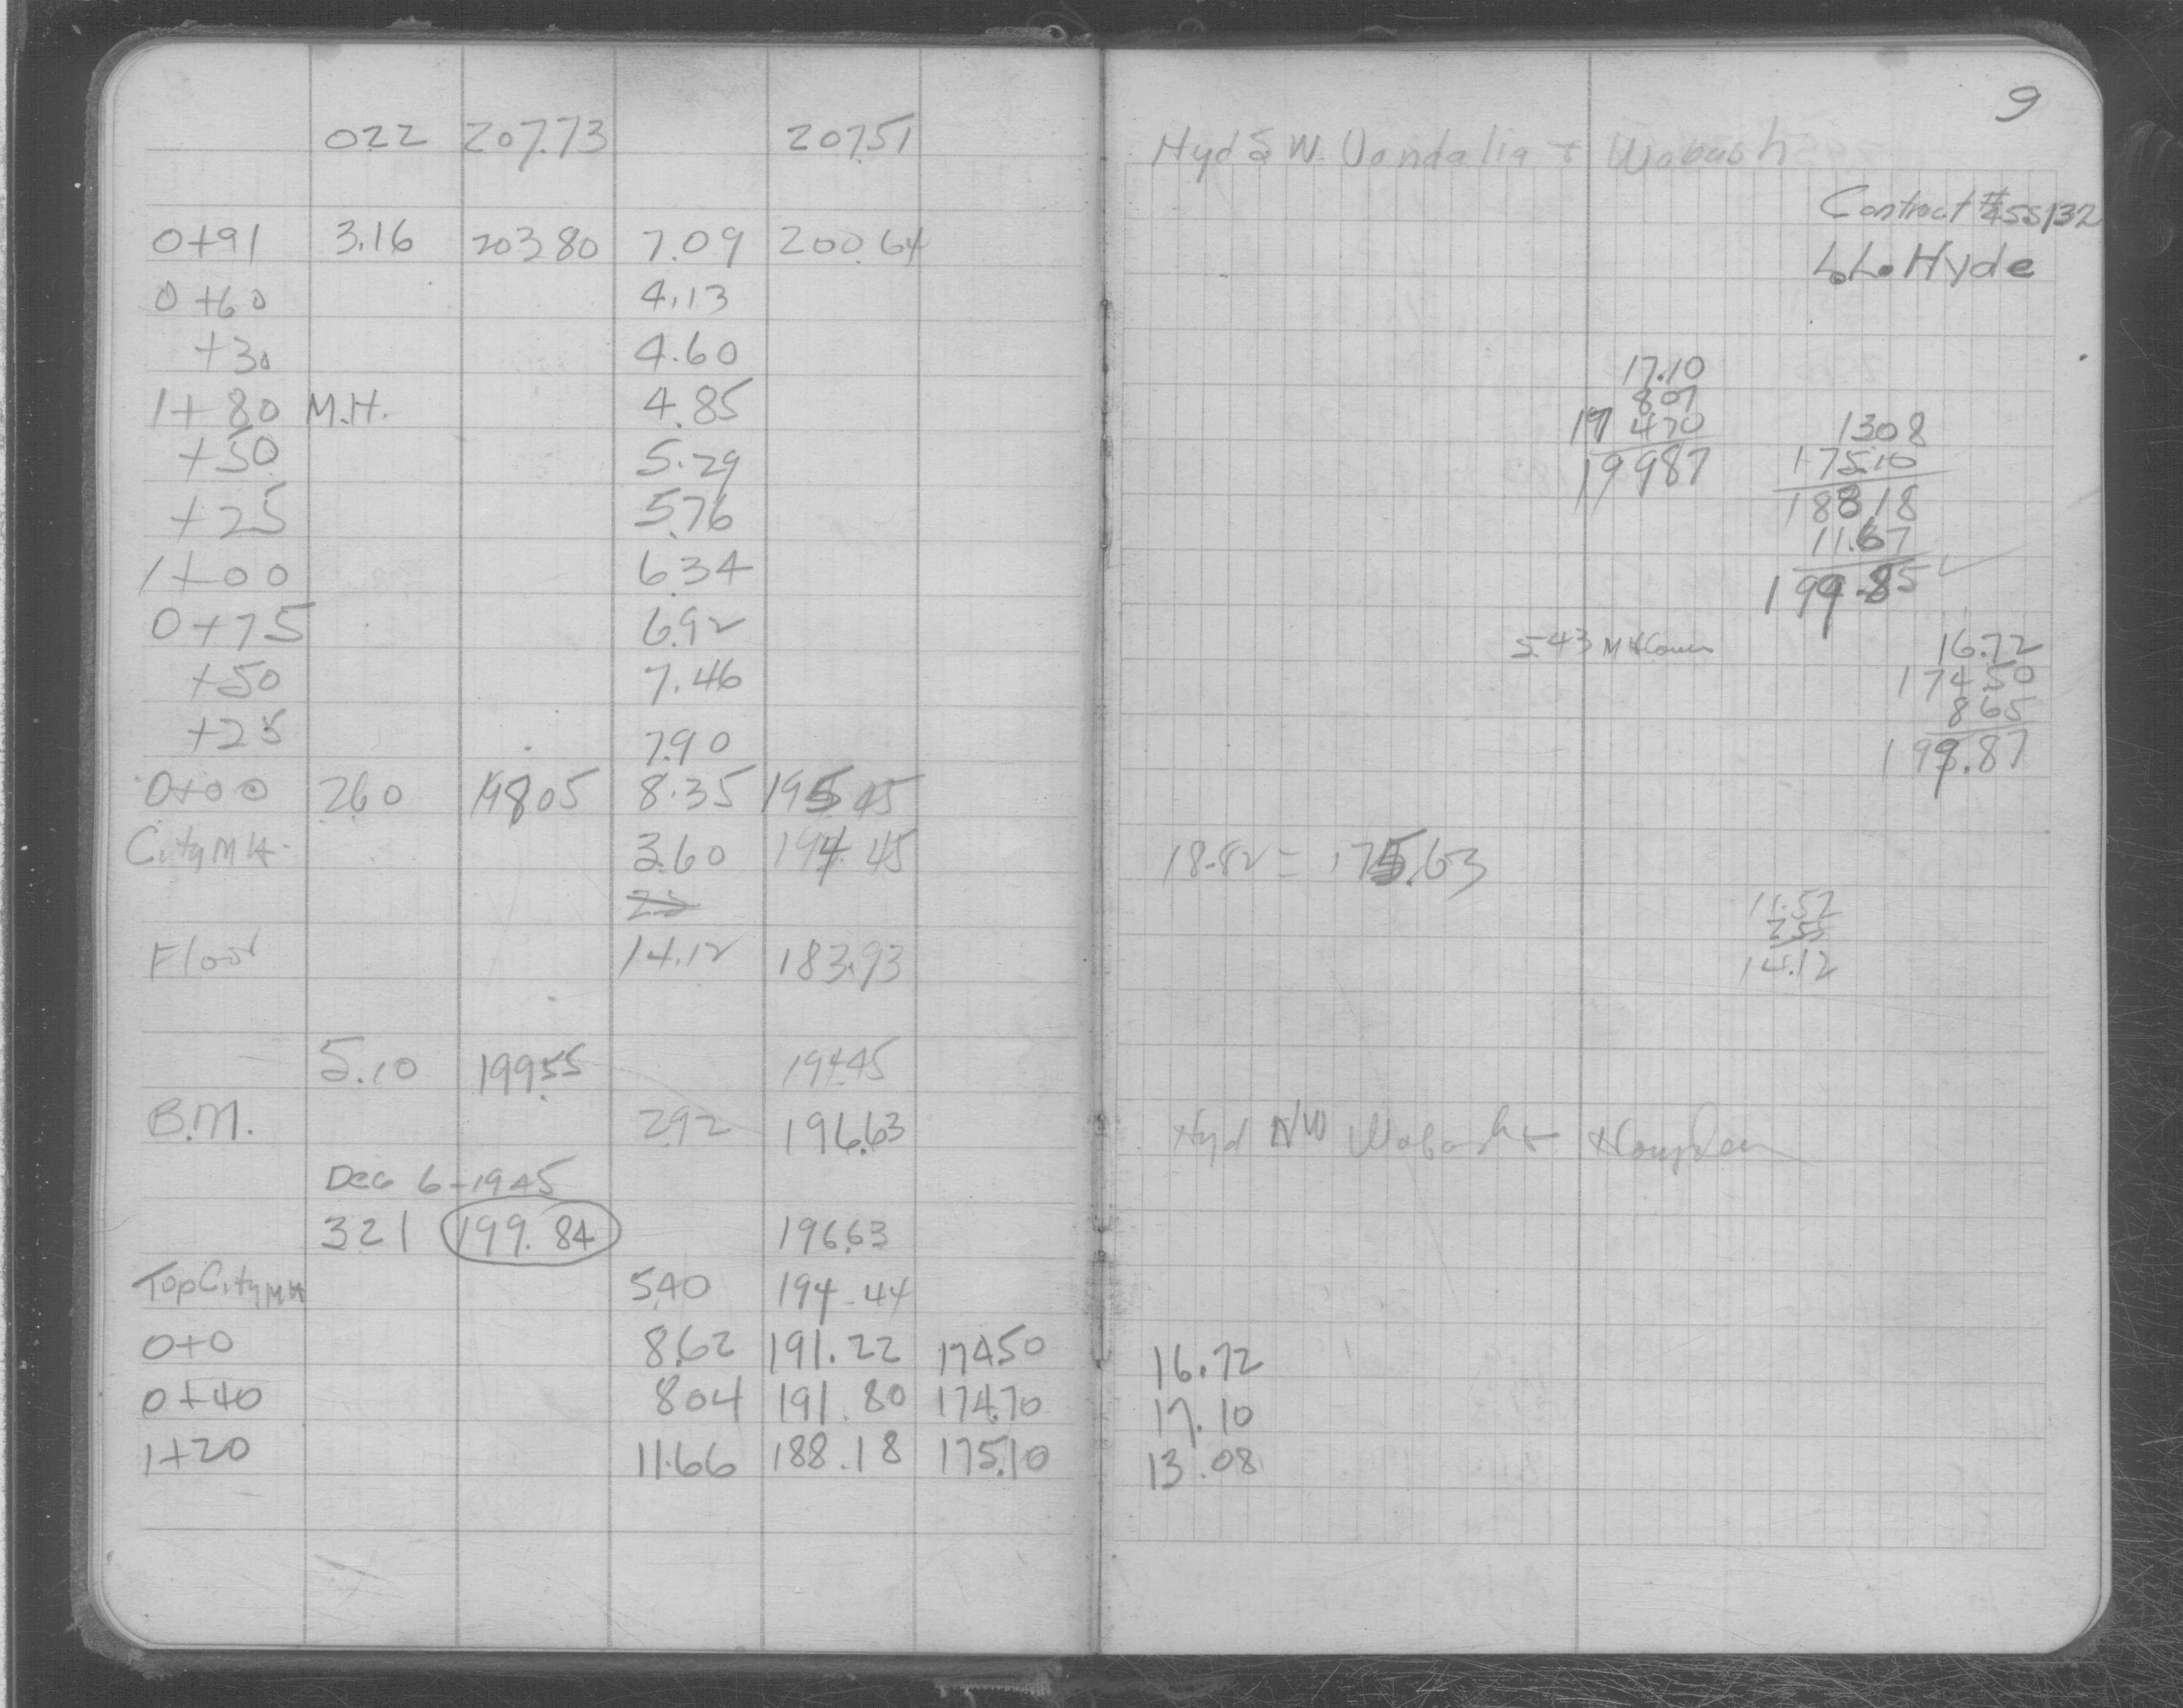 022 207.73 207.51
0+91 3.16 203 80 7.09 200.64
0+60 4.13
+30 4.60
1+80 M.H. 4.85
+50 5.29
+25 5.76
1+00 6.34
0+75 6.92
+50 7.46
+25 7.90
0+00 2.60 198 05 8.35 195 45
City MH 3.60 194.45
Floor 14.12 183.93
5.10 199.55 194.45
B.M. 2.92 196.63
Dec 6-1945
3.21 199.84 196.63
Top City MH 5.40 194.44
0+0 8.62 191.22 174.50
0+40 8.04 191.80 174.70
1+20 11.66 188.18 175.10
9
Hyd S W. Vandalia + Wabash
Contract #455132
L.L. Hyde
17.10
8 07
17 4 70
199 87
13 08
175.10
188.18
11.67
199.85
5.43 MH Cover
16.72
174 50
8 65
199.87
18.82 = 175.63
11.57
2 55
14.12
Hyd NW Wabash +
16.72
17.10
13.08